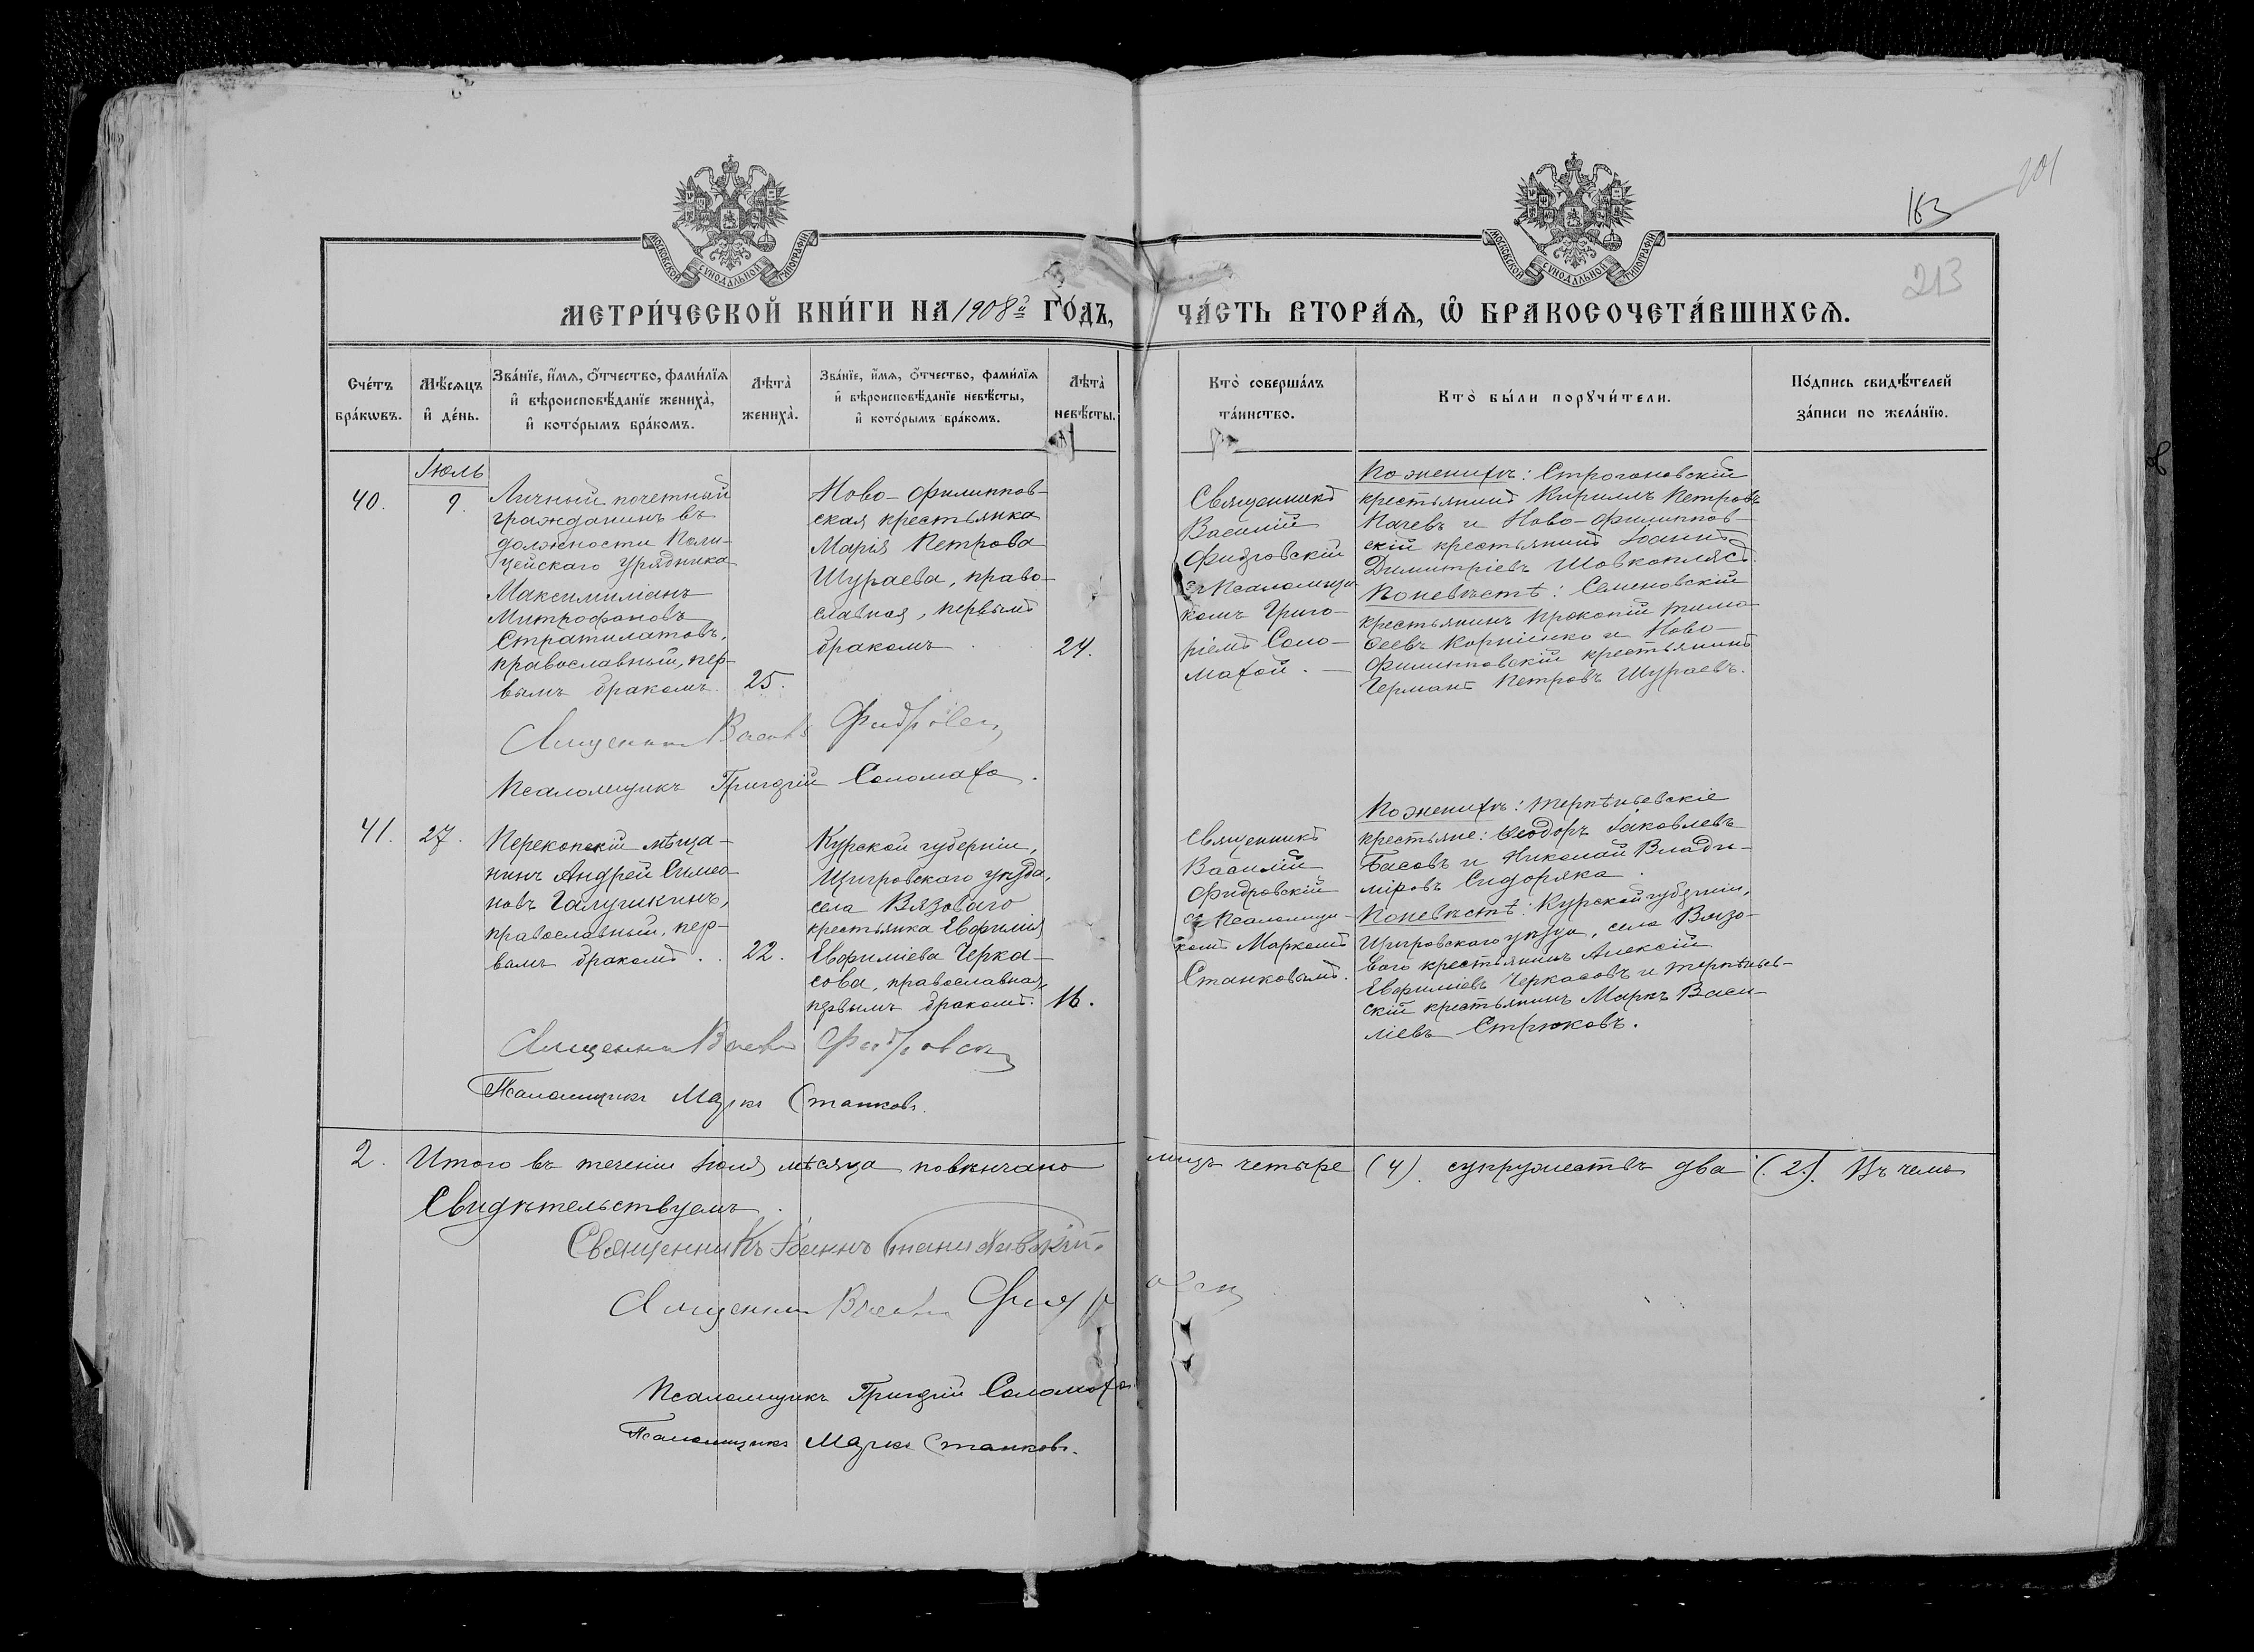 МОСКОВСКОЙ СУНОДАЛЬНОЙ ТИПОГРАФІИ
МОСКОВСКОЙ СУНОДАЛЬНОЙ ТИПОГРАФІИ
163
213
МЕТРИ́ЧЕСКОЙ КНИ́ГИ НА 1908й ГО́ДЪ,
ЧА́СТЬ ВТОРА́Я, Ѡ БРАКОСОЧЕТА́ВШИХСЯ.
Сче́тъ
бра́кѡвъ.
Мѣ́сяцъ
и҆ де́нь.
Зва́нїе, и҆́мя, ѻ҆́тчество, фами́лїя
и҆ вѣроисповѣ́данїе жениха̀,
и҆ кото́рымъ бра́комъ.
Лѣта̀
жениха̀.
Зва́нїе, и҆́мя, ѻ҆́тчество, фами́лїя
и҆ вѣроисповѣ́данїе невѣ́сты,
и҆ кото́рымъ бра́комъ.
Лѣта̀
невѣ́сты.
Кто̀ соверша́лъ
та́инство.
Кто̀ бы́ли порꙋчи́тели.
По́дпись свидѣ́телей
за́писи по жела́нїю.
Іюль
40.
9.
Личный почетный
гражданинъ въ
должности Поли-
цейскаго Урядника
Максимиліанъ
Митрофановъ
Стратилатовъ,
православный, пер-
вымъ бракомъ.
25.
Ново-Филиппов-
ская крестьянка
Марія Петрова
Шураева, право-
славная, первымъ
бракомъ.
24.
Священникъ
Василій
Фидровскій
съ Псаломщи-
комъ Григо-
ріемъ Соло-
махой.
По женихѣ: Строгоновскій
крестьянинъ Кириллъ Петровъ
Пачевъ и Ново-Филиппов-
скій крестьянинъ Іоаннъ
Димитріевъ Шовкоплясъ.
По невѣстѣ: Семеновскій
крестьянинъ Прокопій Тимо-
ѳеевъ Корніенко и Ново-
Филипповскій крестьянинъ
Германъ Петровъ Шураевъ.
Священникъ Василій Фидровскій
Псаломщикъ Григорій Соломаха.
41.
27.
Перекопскій мѣща-
нинъ Андрей Симео-
новъ Галушкинъ,
православный, пер-
вымъ бракомъ.
22.
Курской губерніи,
Щигровскаго уѣзда,
села Вязоваго
крестьянка Евфимія
Евфиміева Черка-
сова, православная,
первымъ бракомъ.
16.
Священникъ
Василій
Фидровскій
съ Псаломщи-
комъ Маркомъ
Станковымъ.
По женихѣ: Терпѣньевскіе
крестьяне: Ѳеодоръ Іаковлевъ
Басовъ и Николай Влади-
міровъ Сидоряка.
По невѣстѣ: Курской губерніи,
Щигровскаго уѣзда, села Вязо-
ваго крестьянинъ Алексій
Евфиміевъ Черкасовъ и Терпѣньев-
скій крестьянинъ Маркъ Васи-
ліевъ Стрюковъ.
Священникъ Василій Фидровскій
Псаломщикъ Маркъ Станковъ.
2. Итого въ теченіи Іюля мѣсяца повѣнчано лицъ четыре (4). супружествъ два (2.). Въ чемъ
Свидѣтельствуемъ.
Священникъ Іоаннъ Станиславскій.
Священникъ Василій Фидровскій
Псаломщикъ Григорій Соломаха
Псаломщикъ Маркъ Станковъ.